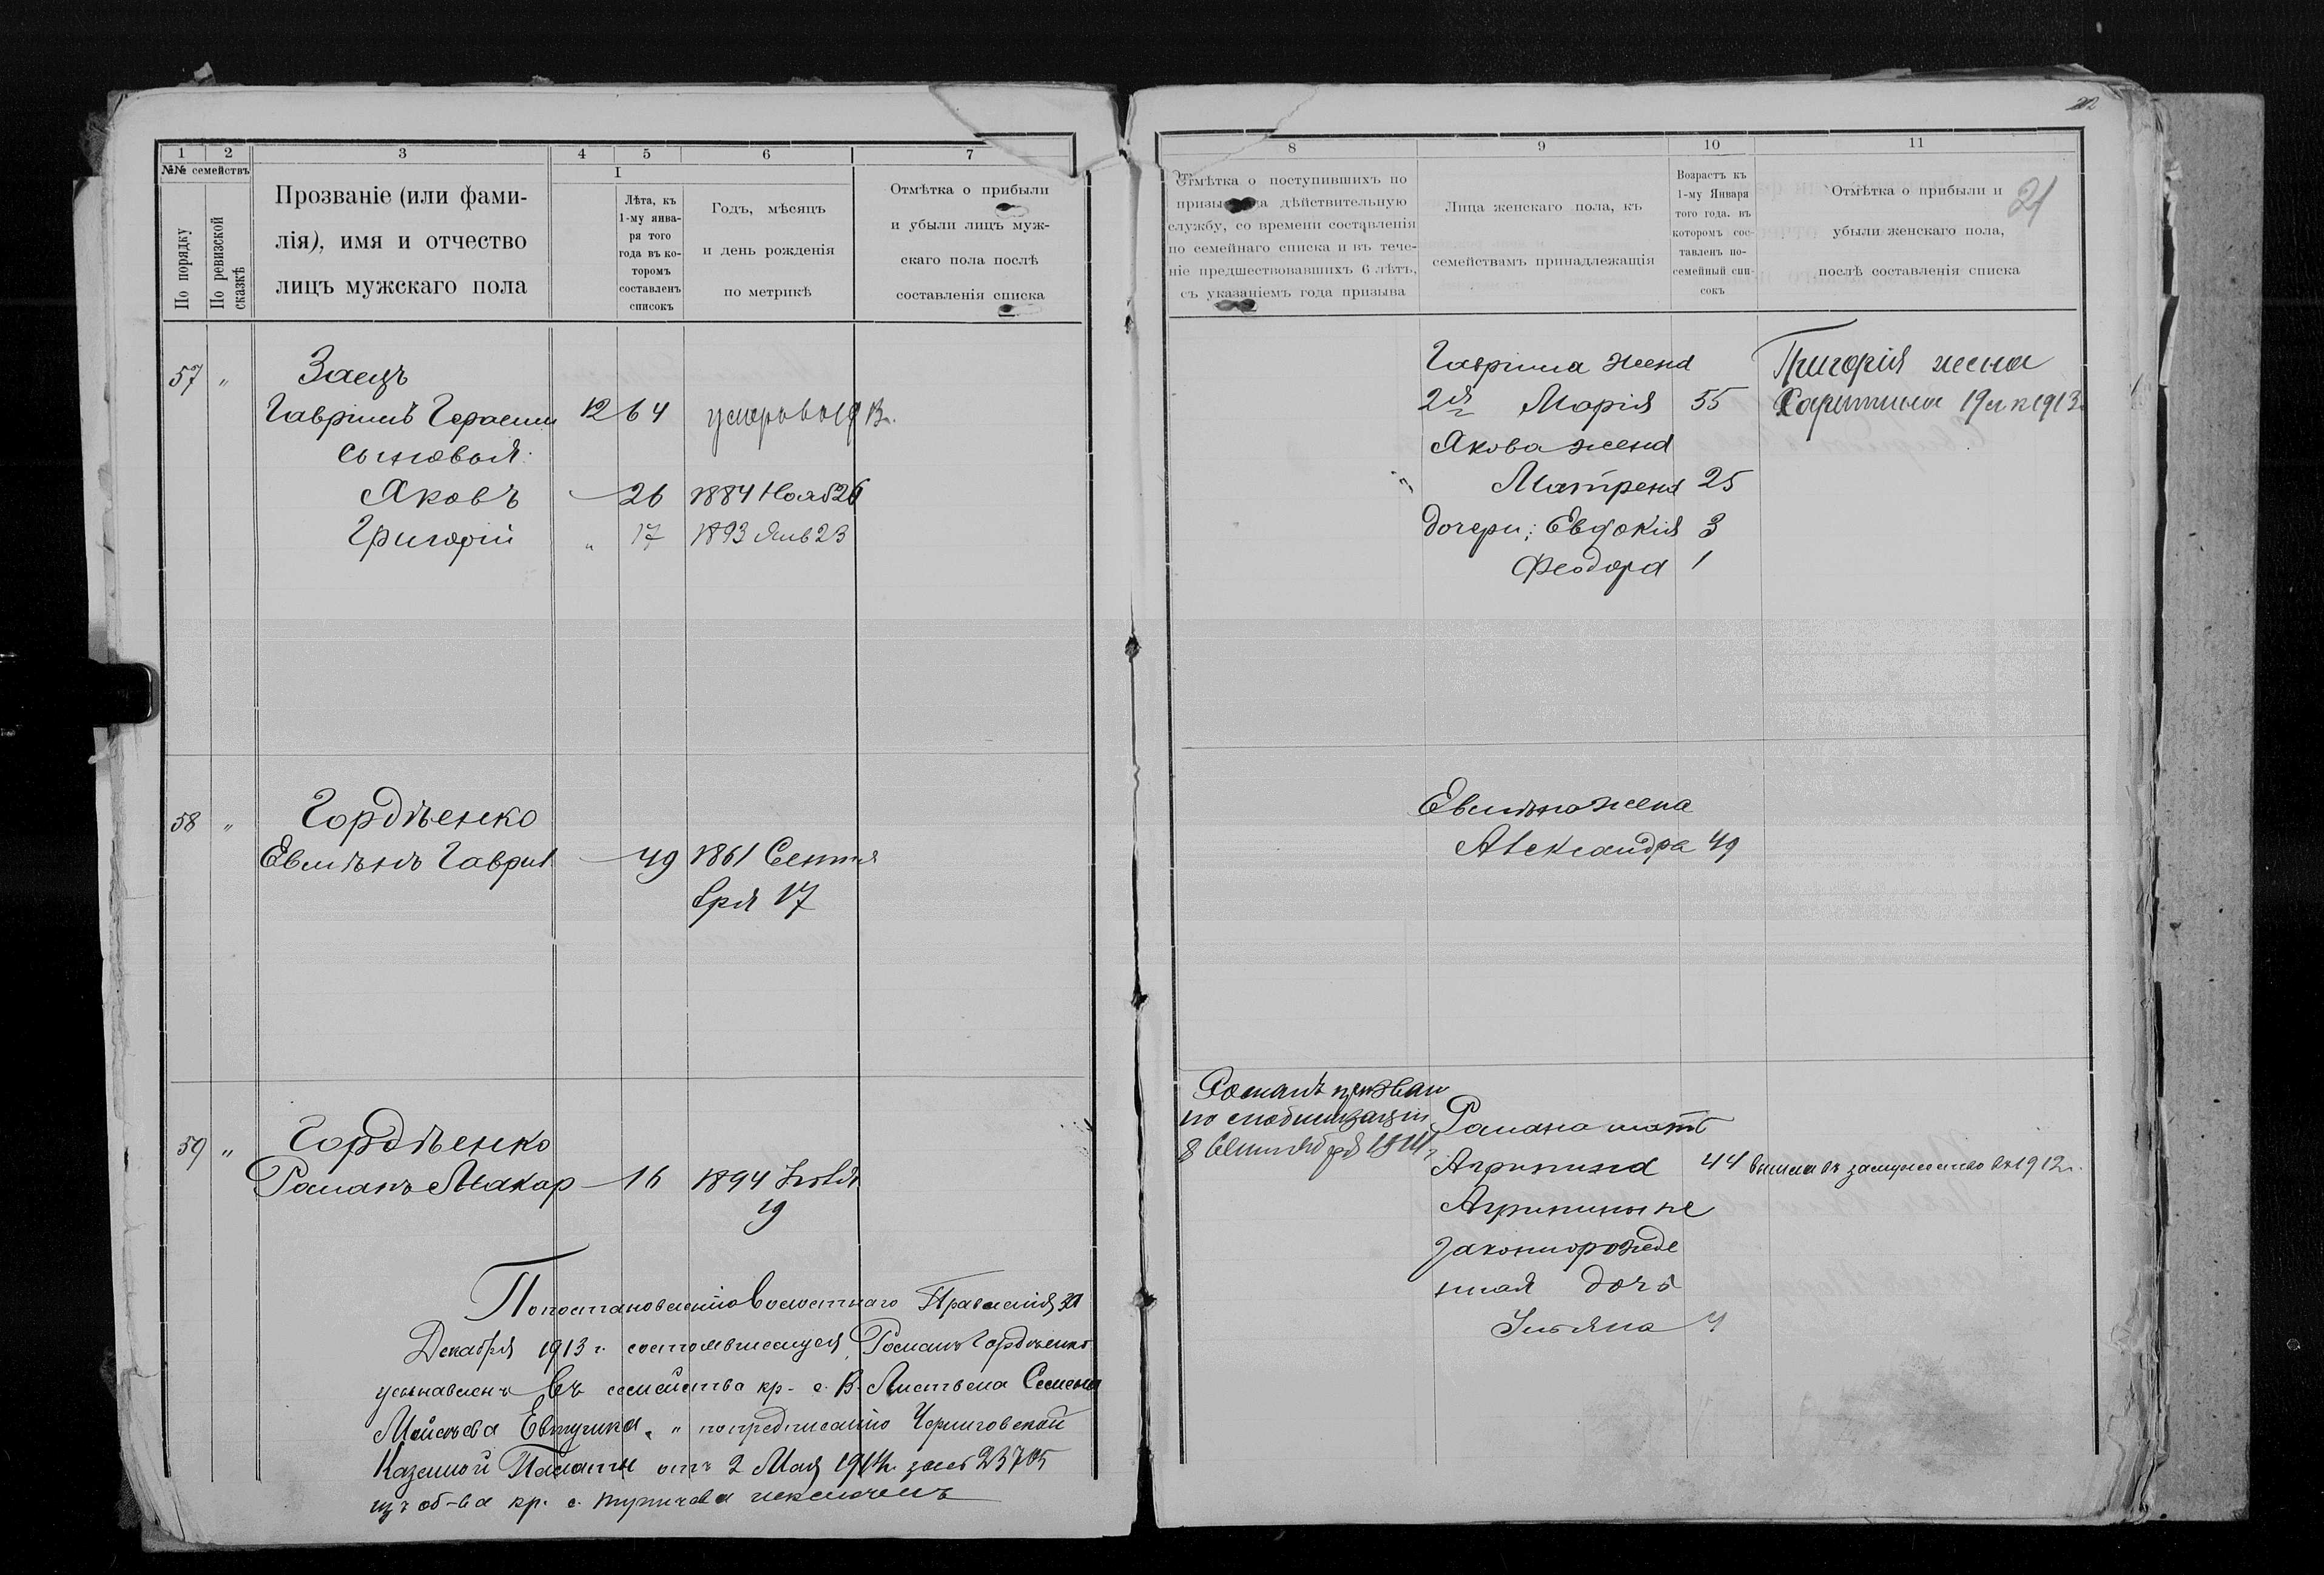 22
1 2 3 4 5 6 7
№№ семействъ
По порядку
По ревизской сказкѣ
Прозваніе (или фами-
лія), имя и отчество
лицъ мужскаго пола
I
Лѣта, къ
1-му янва-
ря того
года въ ко-
торомъ
составленъ
списокъ
Годъ, мѣсяцъ
и день рожденія
по метрикѣ
Отмѣтка о прибыли
и убыли лицъ муж-
скаго пола послѣ
составленія списка
57 "
Заецъ
Гавріилъ Герасим 12 64
сыновья:
Яковъ 26 1884 Нояб 26
Григорій " 17 1893 Янв 23
58 "
Гордѣенко
Евмѣнъ Гаврил 49 1861 Сентя
бря 17
59 "
Гордѣенко
Романъ Макар 16 1894 Іюля
19
По постановленію Волостнаго Правленія 31
Декабря 1913 г. состоявшемуся, Романъ Гордѣенко
усыновленъ въ семейства кр. с. В. Листвена Семена
Евтушка. " по предписанію Черниговской
Казенной Палаты отъ 2 Мая 1914 г. за № 23705
изъ об-ва кр. с. Тупичева исключенъ
8 9 10 11
Отмѣтка о поступившихъ по
призыву на дѣйствительную
службу, со времени составленія
по семейнаго списка и въ тече-
ніе предшествовавшихъ 6 лѣтъ,
съ указаніемъ года призыва
Лица женскаго пола, къ
семействамъ принадлежащія
Возрастъ къ
1-му Января
того года. въ
которомъ сос-
тавленъ по-
семейный спи-
сокъ
Отмѣтка о прибыли и
убыли женскаго пола,
послѣ составленія списка
21
Гавріила жена
2я Марія 55
Якова жена
Матрена 25
дочери: Евдокія 3
Феодора 1
Григорія жена
Харитина 1913
Евмѣна жена
Александра 49
Романъ призван
по мобилизаціи
8 Сентября 1914 г.
Романа мать
Агрипина 44 вышла въ замужество въ 1912 г.
Агрипины не
законнорожде
нная дочь
Ульяна 4